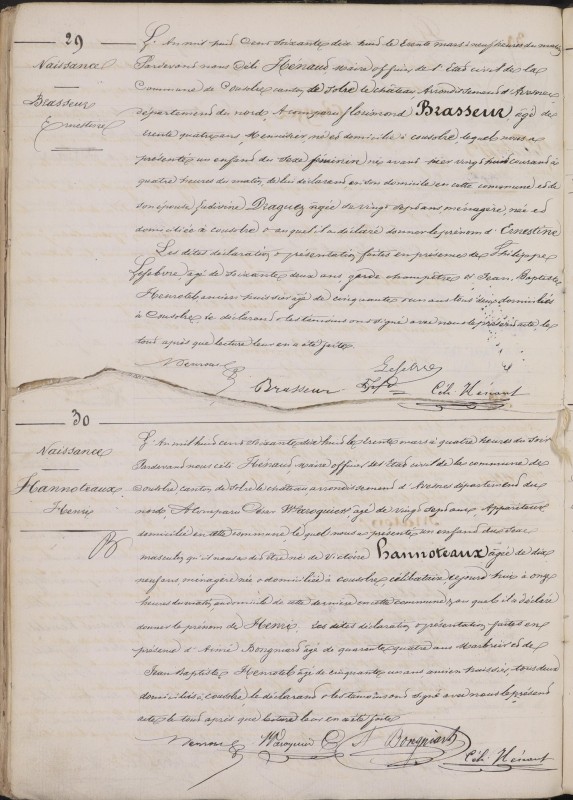 29
Naissance
Brasseur
Ernestine
L'An mil huit Cent soixante dix huit le trente mars à neuf heures du matin
Pardevant nous Célé Hénaut maire officier de l'Etat civil de la
Commune de Cousolre canton de Solre le château Arrondissement d'Avesnes
département du nord A comparu florimond Brasseur âgé de
trente quatre ans, né et domicilié à cousolre, lequel nous a
présenté un enfant du sexe féminin né avant hier vingt huit courant à
quatre heures du matin, de lui déclarant, en son domicile en cette commune et de
son épouse Ludivine Draguez âgée de vingt sept ans ménagère, née et
domiciliée à cousolre & auquel il a déclaré donner le prénom d'Ernestine
Les dites déclaration & présentation faites en présence de Philippe
Lefebvre âgé de soixante deux ans, garde champêtre et Jean Baptiste
Henrotel ancien huissier âgé de cinquante un ans tous deux domiciliés
à Cousolre le déclarant & les témoins ont signé avec nous le présent acte le
tout après que lecture leur en a été faite
Brasseur Lefebvre Célé Hénaut
30
Naissance
Hannoteaux
Henri
L'An mil huit cent soixante dix huit le trente mars à quatre heures du soir
Pardevant nous célé Hénaut maire officier de l'état civil de la commune de
Cousolre canton de Solre le château arrondissement d'Avesnes département du
nord A comparu Warocquier âgé de vingt sept ans
domicilié en cette commune lequel nous a présenté un enfant du sexe
masculin qu'il nous a dit être né de Victoire hannoteaux âgée de dix
neuf ans, ménagère née & domiciliée à cousolre, célibataire, aujourd'hui à onze
heures du matin, au domicile de cette dernière en cette commune, auquel il a déclaré
donner le prénom de Henri. Les dites déclaration & présentation faites en
présence d'Aimé Bongniart âgé de quarante quatre ans marbrier et de
Jean Baptiste Henrotel âgé de cinquante un ans ancien huissier, tous deux
domiciliés à cousolre le déclarant & les témoins ont signé avec nous le présent
acte le tout après que lecture leur en a été faite
Warocquier A Bongniart Célé Hénaut